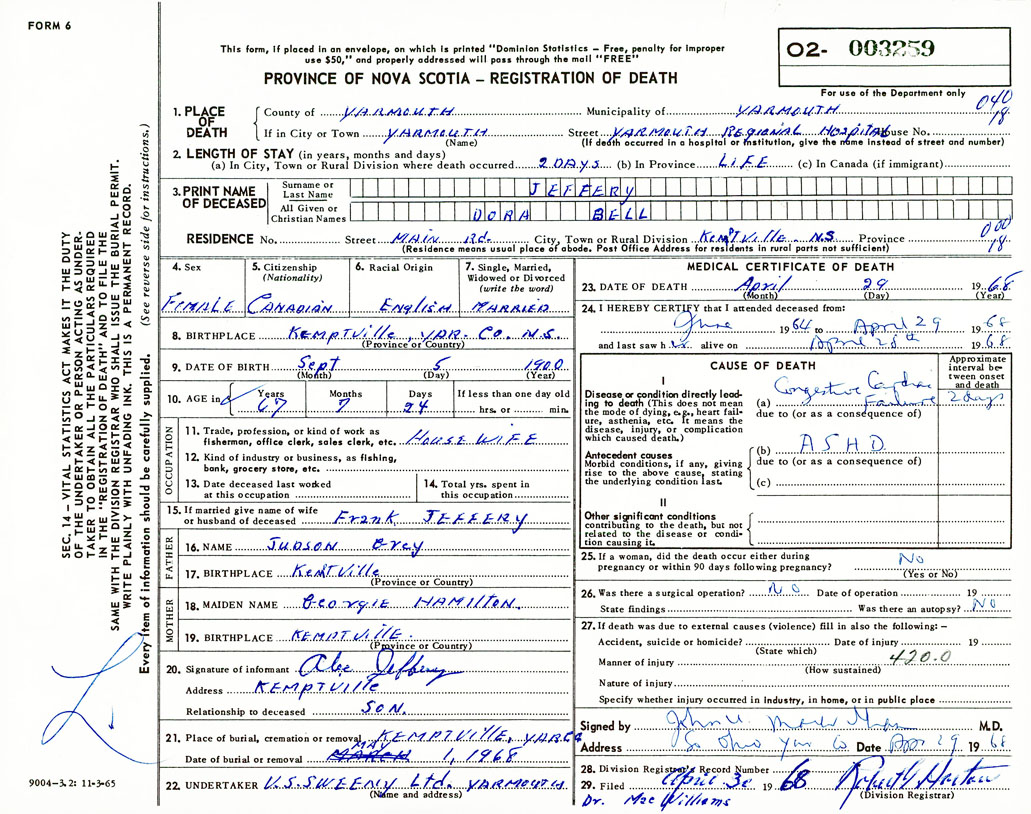 FORM 6
O2- 003259
This form, if placed in an envelope, on which is printed "Dominion Statistics – Free, penalty for improper
use $50," and properly addressed will pass through the mail "FREE"
PROVINCE OF NOVA SCOTIA – REGISTRATION OF DEATH
For use of the Department only
040
18
1. PLACE OF DEATH
County of YARMOUTH Municipality of YARMOUTH
If in City or Town YARMOUTH Street YARMOUTH REGIONAL HOSPITAL House No.
(Name) (If death occurred in a hospital or institution, give the name instead of street and number)
2. LENGTH OF STAY (in years, months and days)
(a) In City, Town or Rural Division where death occurred 2 DAYS (b) In Province LIFE (c) In Canada (if immigrant)
3. PRINT NAME OF DECEASED
Surname or Last Name JEFFERY
All Given or Christian Names DORA BELL
RESIDENCE No. Street MAIN Rd. City, Town or Rural Division KEMPTVILLE N.S Province
000
18
(Residence means usual place of abode. Post Office Address for residents in rural parts not sufficient)
4. Sex
FEMALE
5. Citizenship
(Nationality)
CANADIAN
6. Racial Origin
ENGLISH
7. Single, Married,
Widowed or Divorced
(write the word)
MARRIED
8. BIRTHPLACE KEMPTVILLE, YAR. CO. N.S.
(Province or Country)
9. DATE OF BIRTH Sept 5 1900
(Month) (Day) (Year)
10. AGE in
Years Months Days If less than one day old
67 7 24 hrs. or min.
OCCUPATION
11. Trade, profession, or kind of work as
fisherman, office clerk, sales clerk, etc. HOUSE WIFE
12. Kind of industry or business, as fishing,
bank, grocery store, etc.
13. Date deceased last worked
at this occupation
14. Total yrs. spent in
this occupation
15. If married give name of wife
or husband of deceased FRANK JEFFERY
FATHER
16. NAME JUDSON GREY
17. BIRTHPLACE KEMTVILLE
(Province or Country)
MOTHER
18. MAIDEN NAME GEORGIE HAMILTON.
19. BIRTHPLACE KEMPTVILLE.
(Province or Country)
20. Signature of informant Jeffery
Address KEMPTVILLE
Relationship to deceased SON.
21. Place of burial, cremation or removal KEMPTVILLE, YAR CO
MAY
Date of burial or removal MARCH 1, 1968
22. UNDERTAKER V.S. SWEENY Ltd. YARMOUTH
(Name and address)
MEDICAL CERTIFICATE OF DEATH
23. DATE OF DEATH April 29 1968
(Month) (Day) (Year)
24. I HEREBY CERTIFY that I attended deceased from:
June 1964 to April 29 1968
and last saw her alive on April 28th 1968
CAUSE OF DEATH
Approximate
interval be-
tween onset
and death
I
Disease or condition directly lead-
ing to death (This does not mean
the mode of dying, e.g., heart fail-
ure, asthenia, etc. It means the
disease, injury, or complication
which caused death.)
(a) Congestive Cardiac Failure 2 days
due to (or as a consequence of)
Antecedent causes
Morbid conditions, if any, giving
rise to the above cause, stating
the underlying condition last.
(b) ASHD
due to (or as a consequence of)
(c)
II
Other significant conditions
contributing to the death, but not
related to the disease or condi-
tion causing it.
25. If a woman, did the death occur either during
pregnancy or within 90 days following pregnancy? No
(Yes or No)
26. Was there a surgical operation? NO Date of operation 19
State findings Was there an autopsy? NO
27. If death was due to external causes (violence) fill in also the following: –
Accident, suicide or homicide? Date of injury 19
(State which)
Manner of injury 420.0
(How sustained)
Nature of injury
Specify whether injury occurred in industry, in home, or in public place
Signed by M.D.
Address Date Apr 29 1968
28. Division Registrar's Record Number
29. Filed April 30 1968
(Division Registrar)
Dr. MacWilliams
SEC. 14 – VITAL STATISTICS ACT MAKES IT THE DUTY
OF THE UNDERTAKER OR PERSON ACTING AS UNDER-
TAKER TO OBTAIN ALL THE PARTICULARS REQUIRED
IN THE "REGISTRATION OF DEATH" AND TO FILE THE
SAME WITH THE DIVISION REGISTRAR WHO SHALL ISSUE THE BURIAL PERMIT.
WRITE PLAINLY WITH UNFADING INK. THIS IS A PERMANENT RECORD.
Every item of information should be carefully supplied. (See reverse side for instructions.)
9004–3.2: 11-3-65